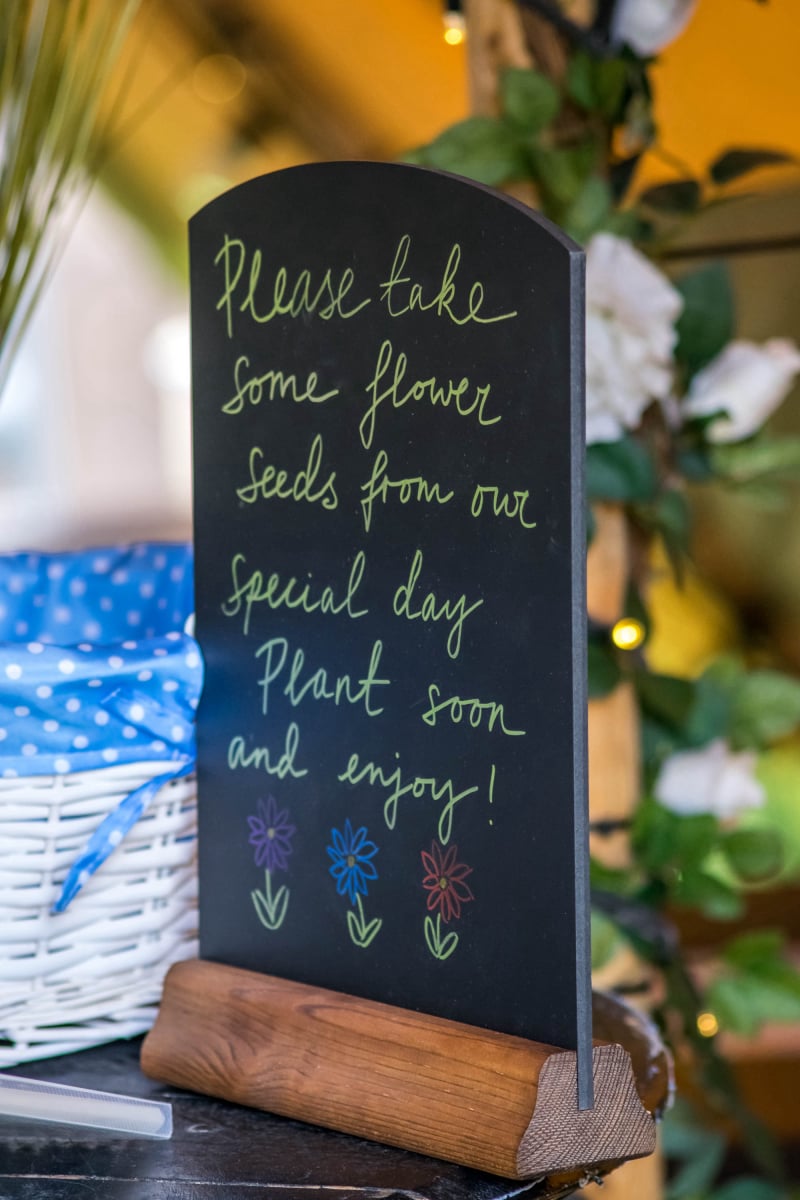 Please take
some flower
seeds from our
special day
Plant soon
and enjoy!